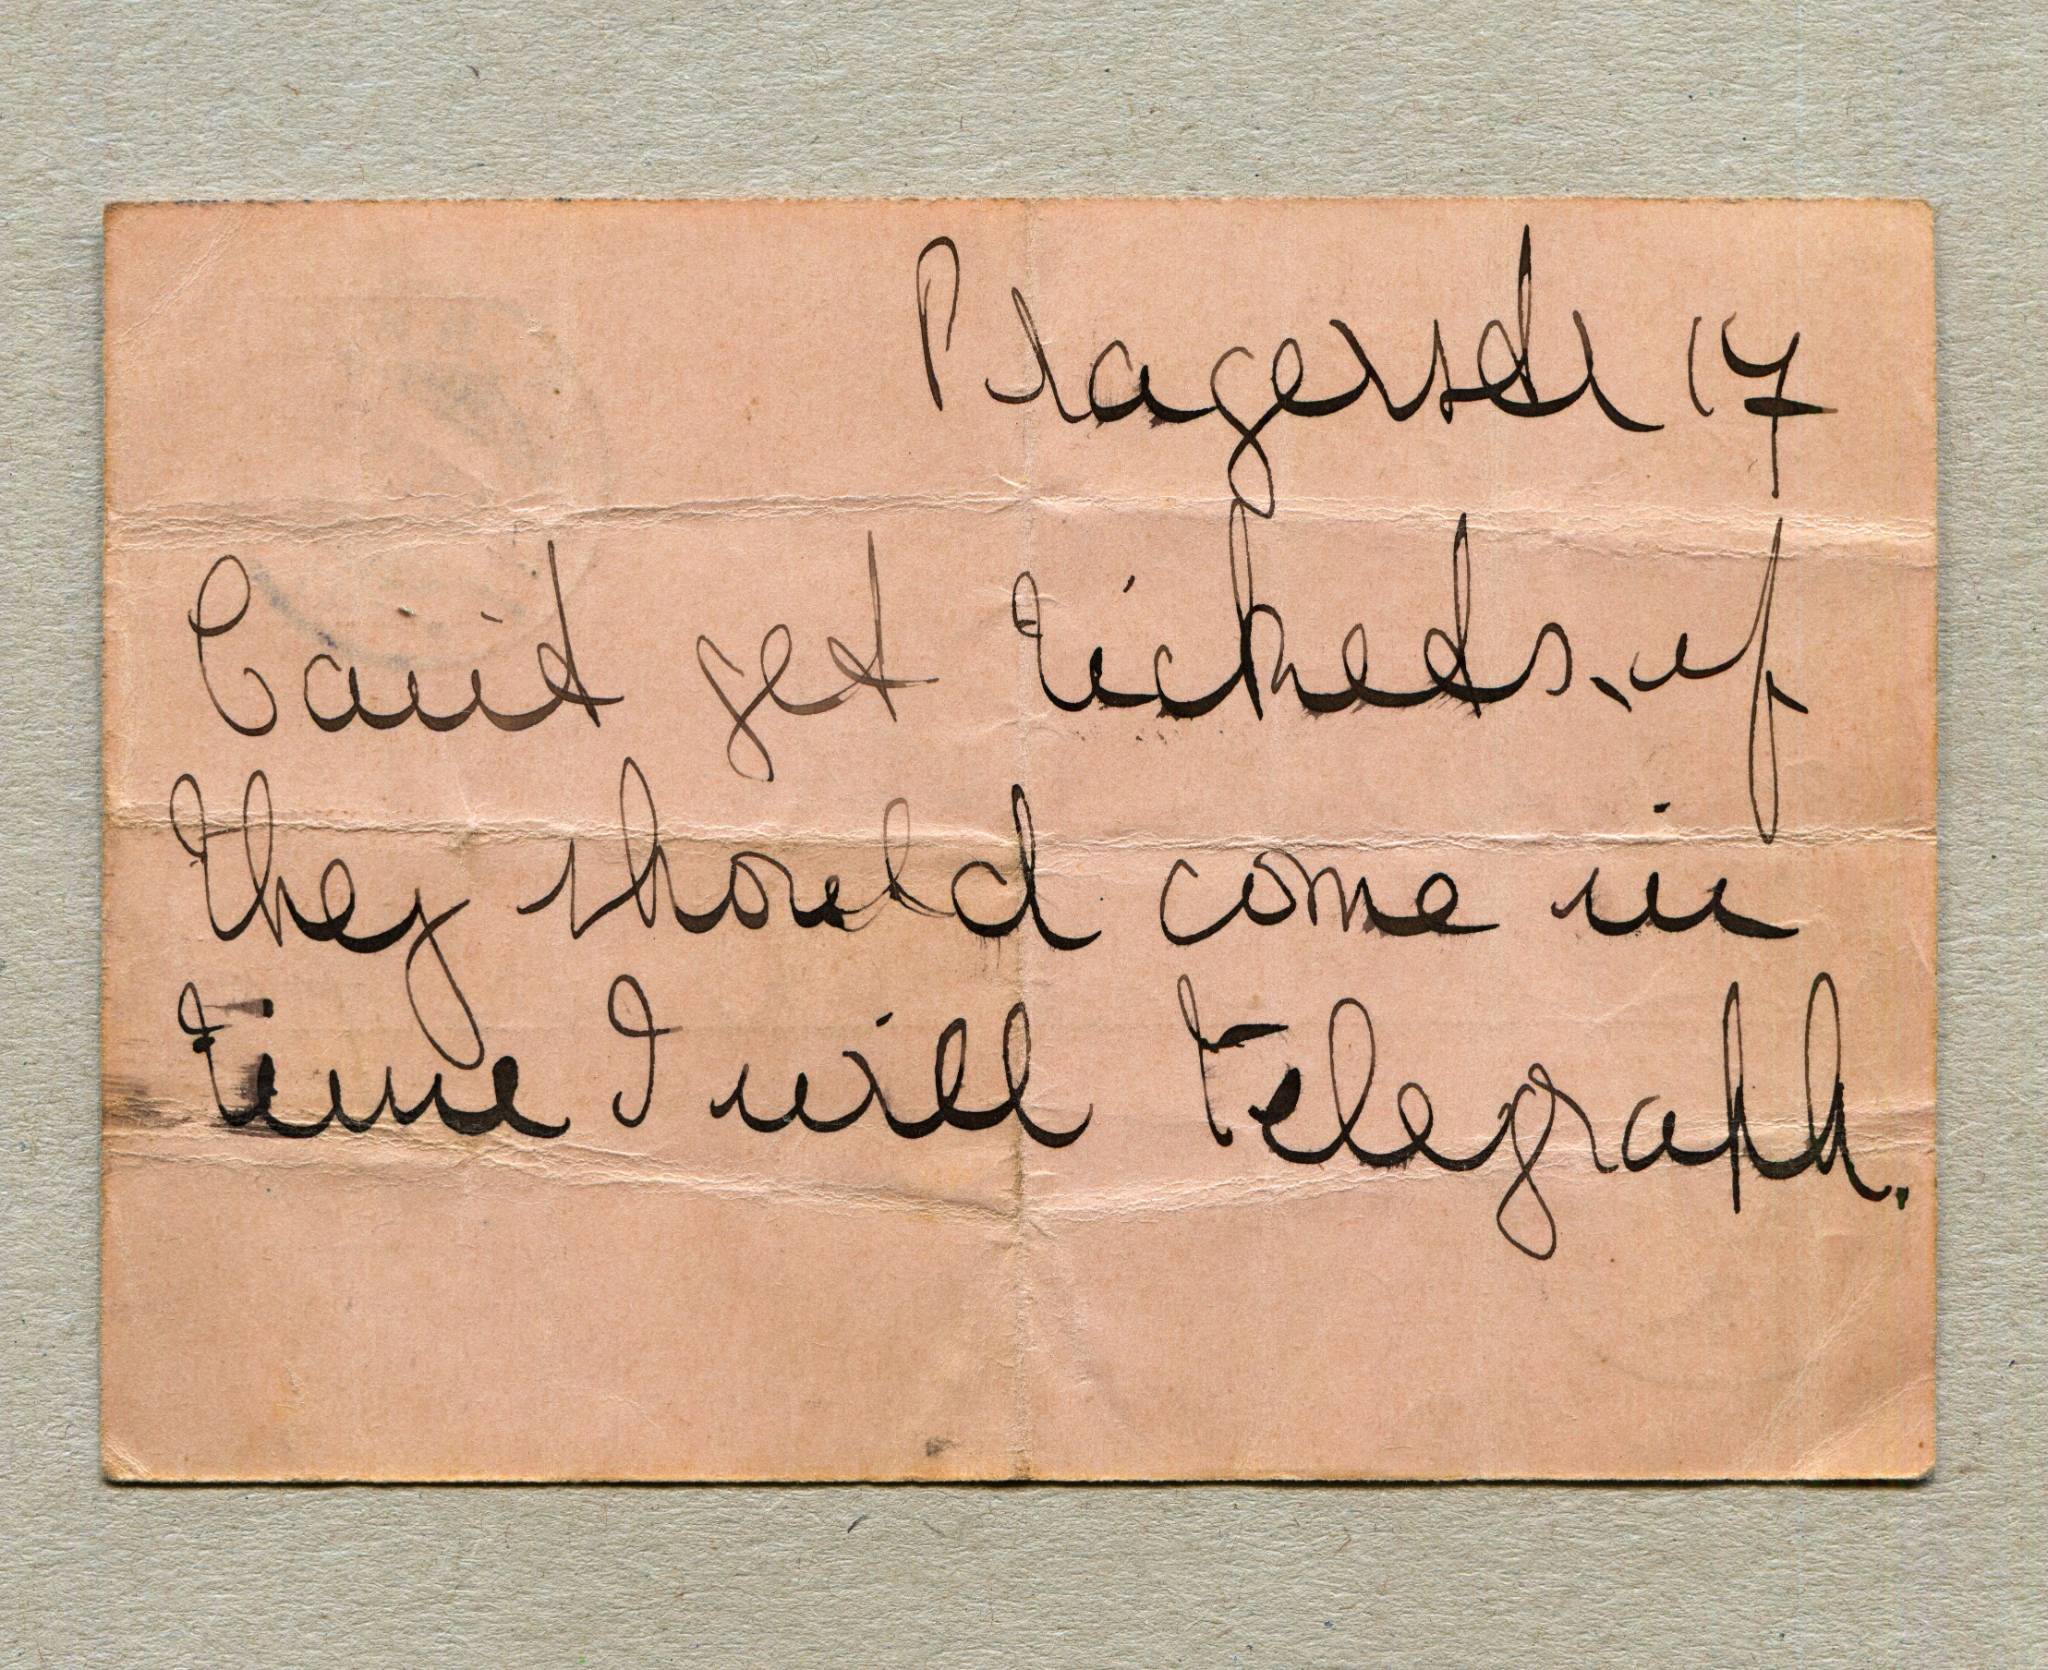 Pragerstr 17
Can't get tickets, if
they should come in
time I will telegraph.